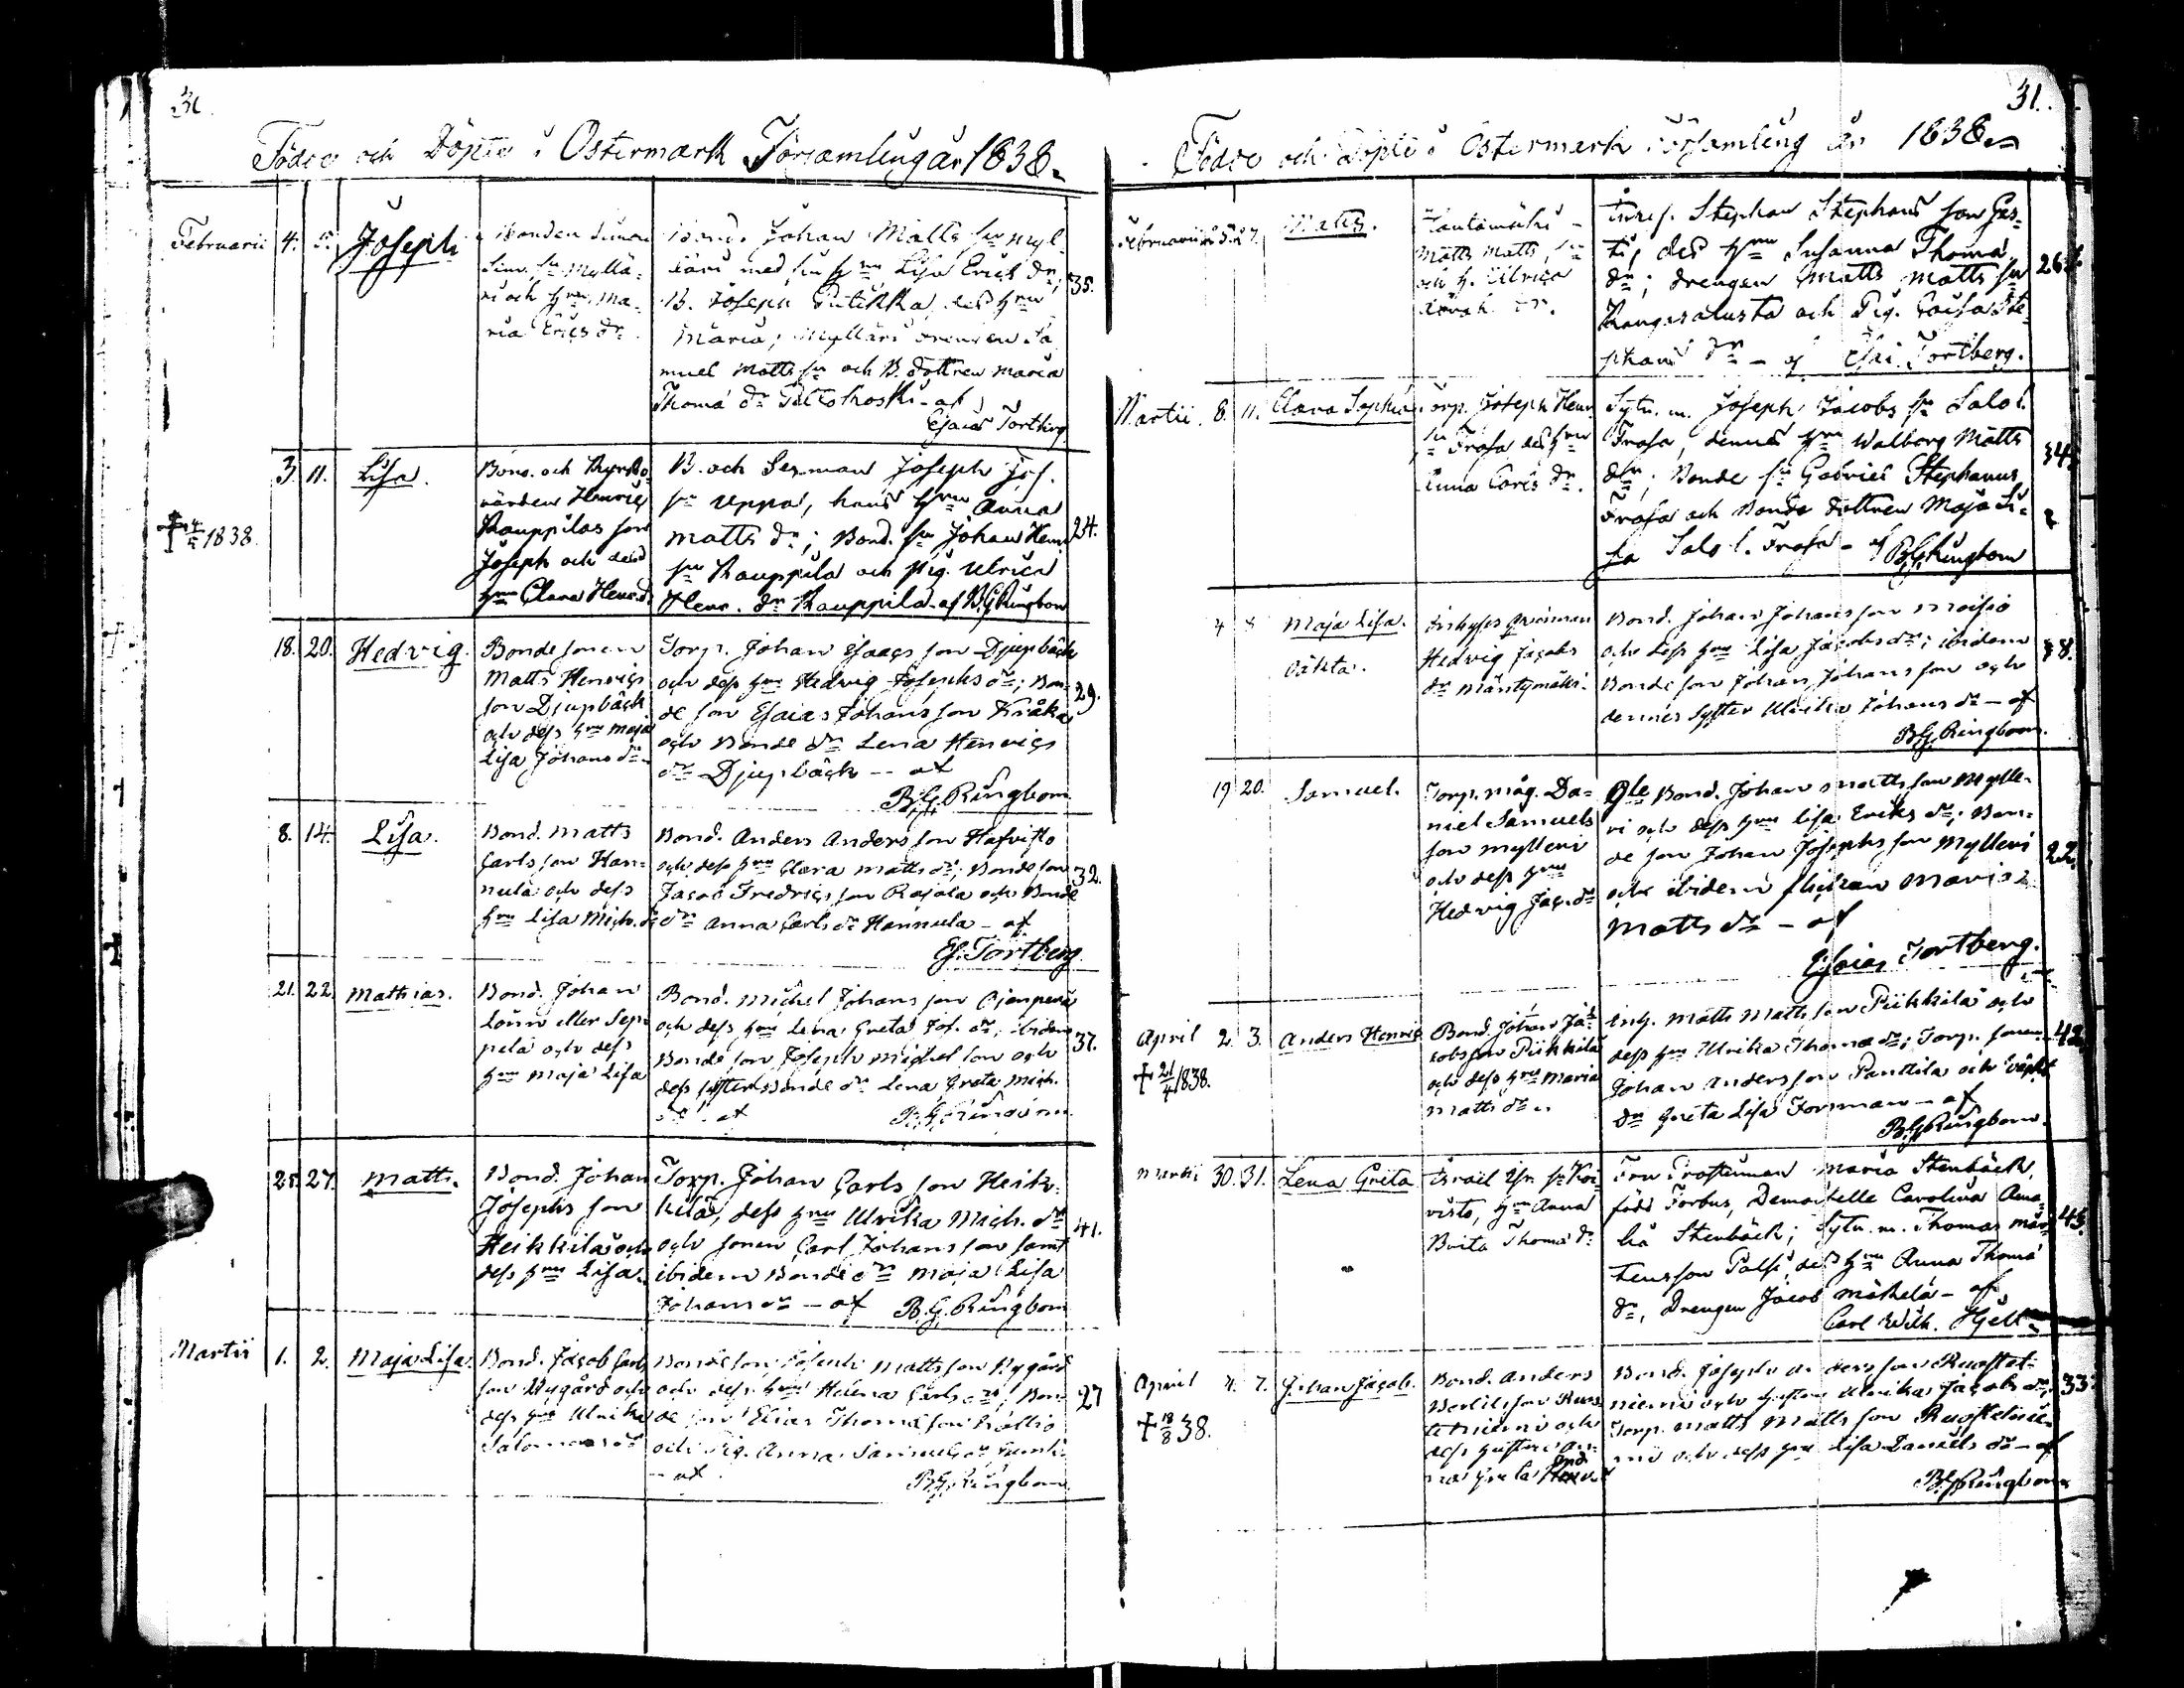 Födde och Döpte i Östermark Församling år 1838.
Februarii 4. 5. Joseph
Bonden Simon
Sim. sn Myllä-
ri och hru Ma-
ria Erics dr.
Bond. Johan Matts sn Myl-
läri med sin hru Lisa Erics dr;
B. Joseph dess hru
Maria; Mylläri drengen Sa
muel Matts sn och B. dottren Maria
Thomæ dr - af
Esaias Tortberg
35.
3. 11. Lisa.
† 1838.
Bond. och Kyrko-
värden Henric
Kauppilas son
Joseph och dess
hru Clara Henr. dr
B. och Sexman Joseph Jos.
sn Uppa, hans hru Anna
Matts dr; Bond. sn Johan Henr.
sn Kauppila och pig. Ulrica
Henr. dr Kauppila - af B.G. Ringbom
24.
18. 20. Hedvig.
Bonde sonen
Matts Henrics
son Djupbäck
och dess hru Maja
Lisa Johans dr
Torp. Johan Esaacs son Djupbäck
och dess hru Hedvig Josephs dr; Bon-
de son Esaias Johans son Kråka
och Bonde dr Lena Henrics
dr Djupbäck - af
B.G. Ringbom
29.
8. 14. Lisa.
Bond. Matts
Carls son Han-
nula och dess
hru Lisa Mich. dr
Bond. Anders Anders son
och dess hru Clara Matts dr; Bonde son
Jacob Fredrics son Rajala och Bonde
dr Anna Carls dr Hannula - af
Es. Tortberg
32.
21. 22. Mathias.
Bond. Johan
eller Sep-
pelä och dess
hru Maja Lisa
Bond. Michel Johans son Ojanperä
och dess hru Lena Greta Jos. dr; ibidem
Bonde son Joseph Michel son och
dess syster Bonde dr Lena Greta Mich.
dr - af B.G. Ringbom
37.
25. 27. Matts.
Bond. Johan
Josephs son
Heikkilä och
dess hru Lisa.
Torp. Johan Carls son Heik-
kilä, dess hru Ulrika Mich. dr
och sonen Carl Johans son samt
ibidem Bonde dr Maja Lisa
Johans dr - af B.G. Ringbom
41.
Martii 1. 2. Maja Lisa.
Bond. Jacob Carls
son Nygård och
dess hru Ulrika
Salomons dr
Bonde son Joseph Matts son Nygård
och dess hru Helena Carls dr; Bon-
de son Elias Thomæ son
och Pig. Anna Samuels dr
- af B.G. Ringbom
27
31.
Födde och Döpte i Östermark Församling år 1838.
Februarii 27. Matts.
Matts Matts sn
och h. Ulrica
dr.
Stephan Stephans son
dess hru Susanna Thomæ
dr; drengen Matts Matts sn
Kangasalusta och Pig. Caisa Ste-
phans dr - af Esai. Tortberg.
26.
Martii 8. 11. Clara Sophia
Torp. Joseph Henr.
sn Frasa dess hru
Anna Caris dr.
Sytn. m. Joseph Jacobs sn Salo l.
Frasa, dennes hru Walborg Matts
dr; Bonde sn Gabriel Stephanus
Frasa och Bonde dottren Maja Li-
sa Salo l. Frasa - af B.G. Ringbom
34
4 8 Maja Lisa.
oäkta.
Inhyses qvinnan
Hedvig Jacobs
dr Mäntymäki.
Bond. Johan Johans son Moisio
och dess hru Lisa Jacobs dr; ibidem
Bonde son Johan Johans son och
dennes syster Ulrika Johans dr - af
B.G. Ringbom.
38.
19 20. Samuel.
Torp. måg. Da-
niel Samuels
son Mylleri
och dess hru
Hedvig Jac. dr
Gle Bond. Johan Matts son Mylle-
ri och dess hru Lisa Eriks dr; Bon-
de son Johan Josephs son Mylleri
och ibidem flickan Maria
Matts dr - af
Esaias Tortberg.
22.
April 2. 3. Anders Henric
† 21/4 1838.
Bond. Johan Ja-
cobs son Piikkilä
och dess hru Maria
Matts dr.
Inh. Matts Matts son Piikkilä och
dess hru Ulrika Thomæ dr; Torp. sonen
Johan Anders son Panttila och
dr Greta Lisa Forsman - af
B.G. Ringbom.
42.
Martii 30. 31. Lena Greta
Israel Isr. sn Koi-
visto, hru Anna
Brita Thomæ dr
Fru Prostinnan Maria Stenbäck
född Forbus, Demoiselle Carolina Ama-
lia Stenbäck; Sytn. m. Thomas Mår-
tensson dess hru Anna Thomæ
dr, Drengen Jacob Mäkelä - af
Carl Wilh. Hjelt
45.
April 4. 7. Johan Jacob.
† 18/8 38.
Bond. Anders
son Ruos-
teniemi och
dess hustru An-
na
Bond. Joseph Anders son Ruostet-
niemi och hustru Ulrika Jacobs dr;
Torp. Matts Matts son Ruostetnie-
mi och dess hru Lisa Daniels dr - af
B.G. Ringbom
33.